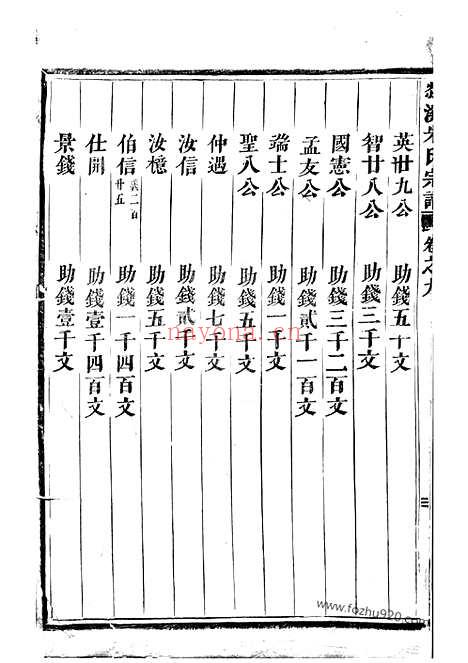 氏宗譜 卷之九
英世九公 助錢五千文
智廿八公 助錢三千文
國憲公 助錢三千二百文
孟友公 助錢貳千一百文
瑞士公 助錢一千文
聖八公 助錢五千文
仲遇 助錢七千文
汝信 助錢貳千文
汝檍 助錢五千文
伯信 助錢一千四百文
仕開 助錢壹千四百文
景錢 助錢壹千文
nayona.cn
www.fozhu920.com